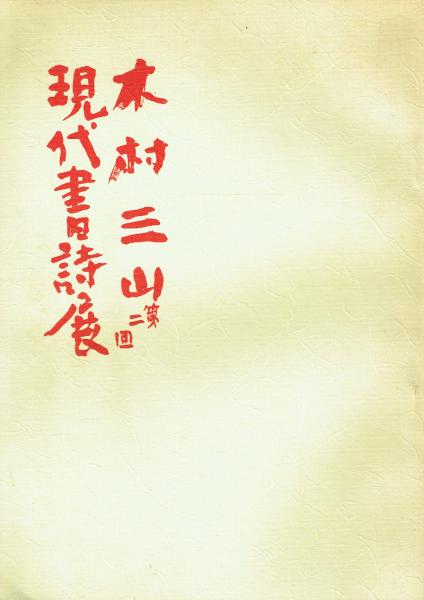 木村三山
第二回
現代書詩展